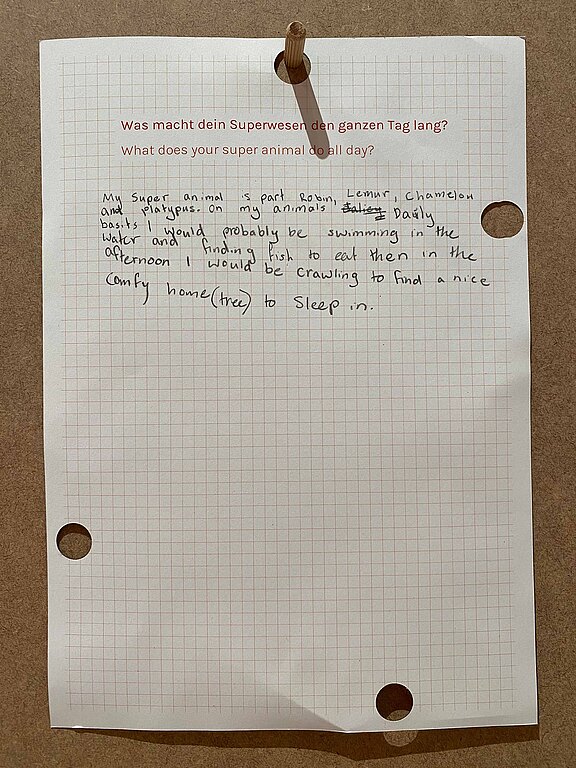 Was macht dein Superwesen den ganzen Tag lang?
What does your super animal do all day?
My super animal is part Robin, Lemur, Chamelon
and platypus. On my animals Daily
basits I would probably be swimming in the
water and finding fish to eat then in the
afternoon I would be crawling to find a nice
comfy home (tree) to sleep in.